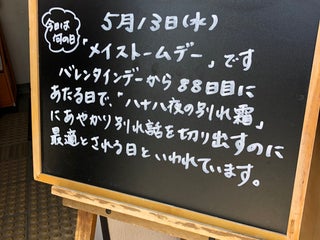 今日は
何の日
5月13日(水)
「メイストームデー」です
バレンタインデーから88日目に
あたる日で、「八十八夜の別れ霜」
にあやかり別れ話を切り出すのに
最適とされる日といわれています。